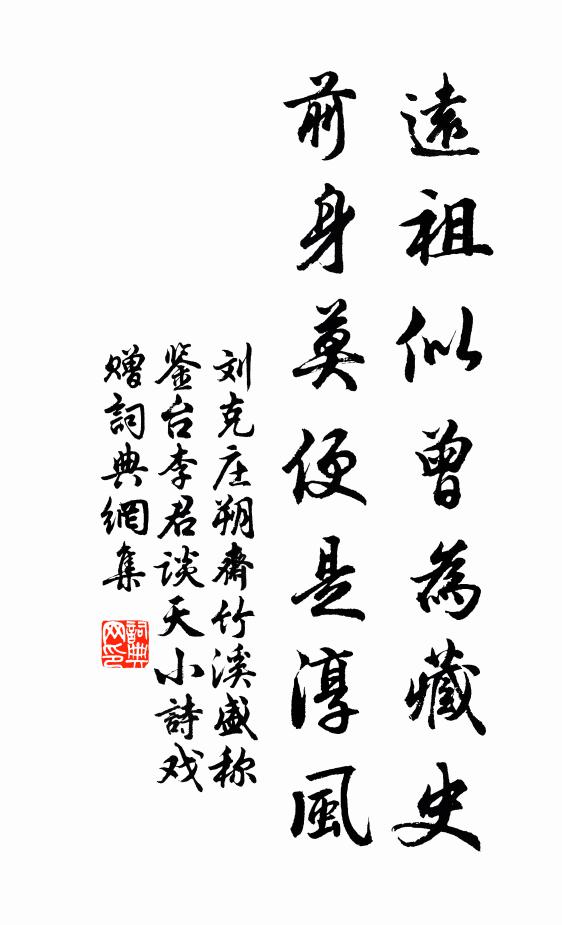 遠祖似曾為藏史
前身莫便是淳風
刘克庄朔齋竹溪盛称
鉴台李君谈天小詩戏
赠詞典網集
詞典网印